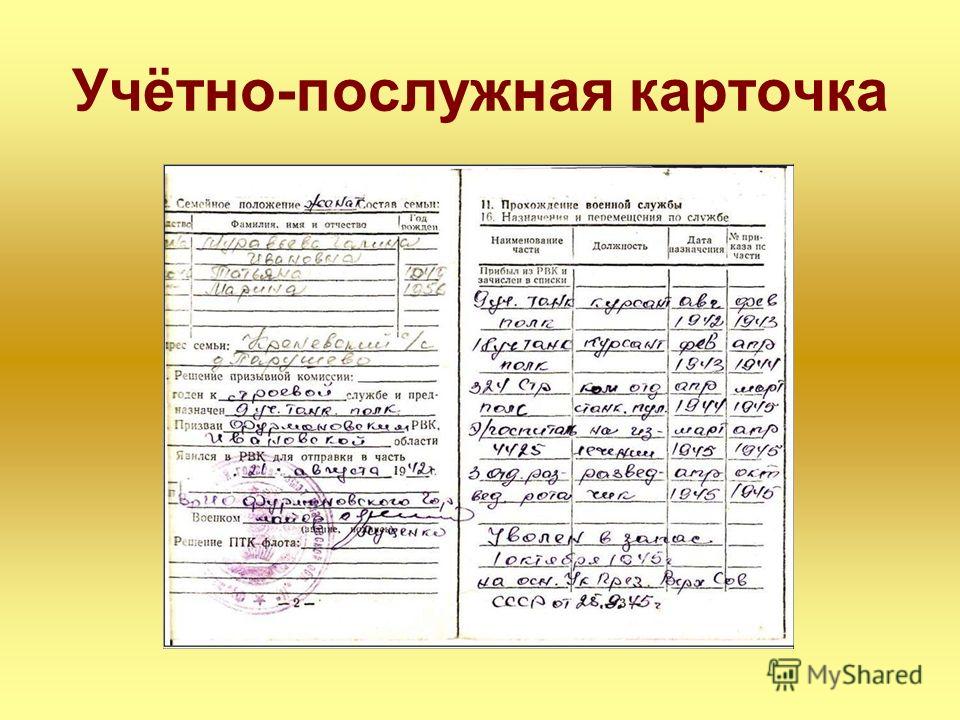 Учётно-послужная карточка
Семейное положение женат Состав семьи:
Фамилия, имя и отчество
Год рожден
Муравьева Галина
Ивановна
Татьяна
Марина 1956
рес семьи: с/с
д. Парушево
Решение призывной комиссии:
годен к строевой службе и пред-
назначен 9 уч. танк. полк.
Призван Фурмановским РВК,
Ивановской области
Явился в РВК для отправки в часть
21 августа 1942г.
Фурмановского Гор.
Военком майор
Решение ПТК флота:
— 2 —
11. Прохождение военной службы
16. Назначения и перемещения по службе
Наименование части
Должность
Дата назначения
№ при-каза по части
Прибыл из РВК и
зачислен в списки
9 уч. танк курсант авг фев
полк 1942 1943
уч танк курсант фев апр
полк 1943 1944
324 стр ком отд апр март
полк станк. пул. 1944 1945
Э/госпиталь на из- март апр
4425 лечении 1945 1945
3 отд. раз- развед- апр окт
вед. рота чик 1945 1945
Уволен в запас.
1 октября 1945г
на осн. Ук През. Верх Сов
СССР от 25.9.45г
MyShared